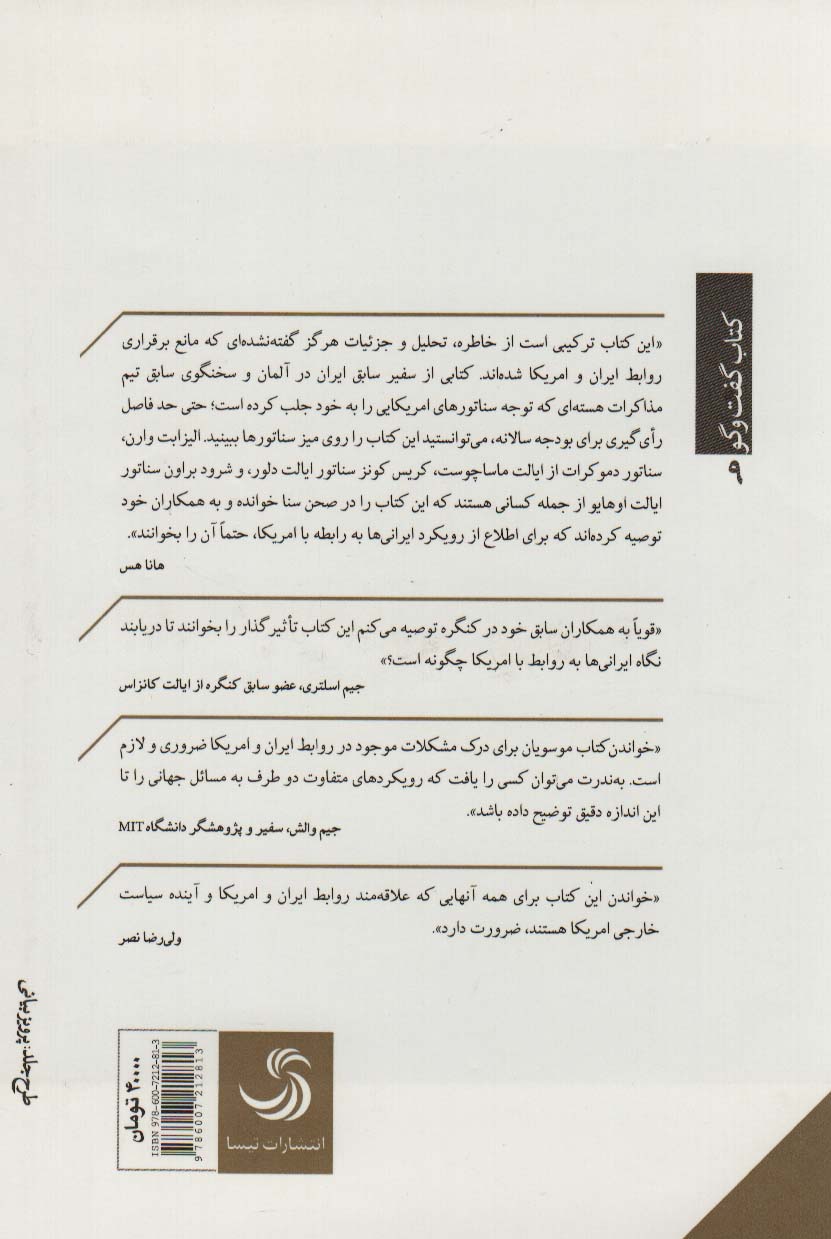 کتاب گفت‌وگو
«این کتاب ترکیبی است از خاطره، تحلیل و جزئیات هرگز گفته‌نشده‌ای که مانع برقراری
روابط ایران و امریکا شده‌اند. کتابی از سفیر سابق ایران در آلمان و سخنگوی سابق تیم
مذاکرات هسته‌ای که توجه سناتورهای امریکایی را به خود جلب کرده است؛ حتی حد فاصل
رأی‌گیری برای بودجه سالانه، می‌توانستید این کتاب را روی میز سناتورها ببینید. الیزابت وارن،
سناتور دموکرات از ایالت ماساچوست، کریس کونز سناتور ایالت دلور، و شرود براون سناتور
ایالت اوهایو از جمله کسانی هستند که این کتاب را در صحن سنا خوانده و به همکاران خود
توصیه کرده‌اند که برای اطلاع از رویکرد ایرانی‌ها به رابطه با امریکا، حتماً آن را بخوانند».
هانا هس
«قویاً به همکاران سابق خود در کنگره توصیه می‌کنم این کتاب تأثیرگذار را بخوانند تا دریابند
نگاه ایرانی‌ها به روابط با امریکا چگونه است؟»
جیم اسلتری، عضو سابق کنگره از ایالت کانزاس
«خواندن کتاب موسویان برای درک مشکلات موجود در روابط ایران و امریکا ضروری و لازم
است. به‌ندرت می‌توان کسی را یافت که رویکردهای متفاوت دو طرف به مسائل جهانی را تا
این اندازه دقیق توضیح داده باشد».
جیم والش، سفیر و پژوهشگر دانشگاه MIT
«خواندن این کتاب برای همه آنهایی که علاقه‌مند روابط ایران و امریکا و آینده سیاست
خارجی امریکا هستند، ضرورت دارد».
ولی‌رضا نصر
انتشارات تیسا
ISBN 978-600-7212-81-3
9 786007 212813
۴۰۰۰۰ تومان
طرح جلد: پرویز بیانی